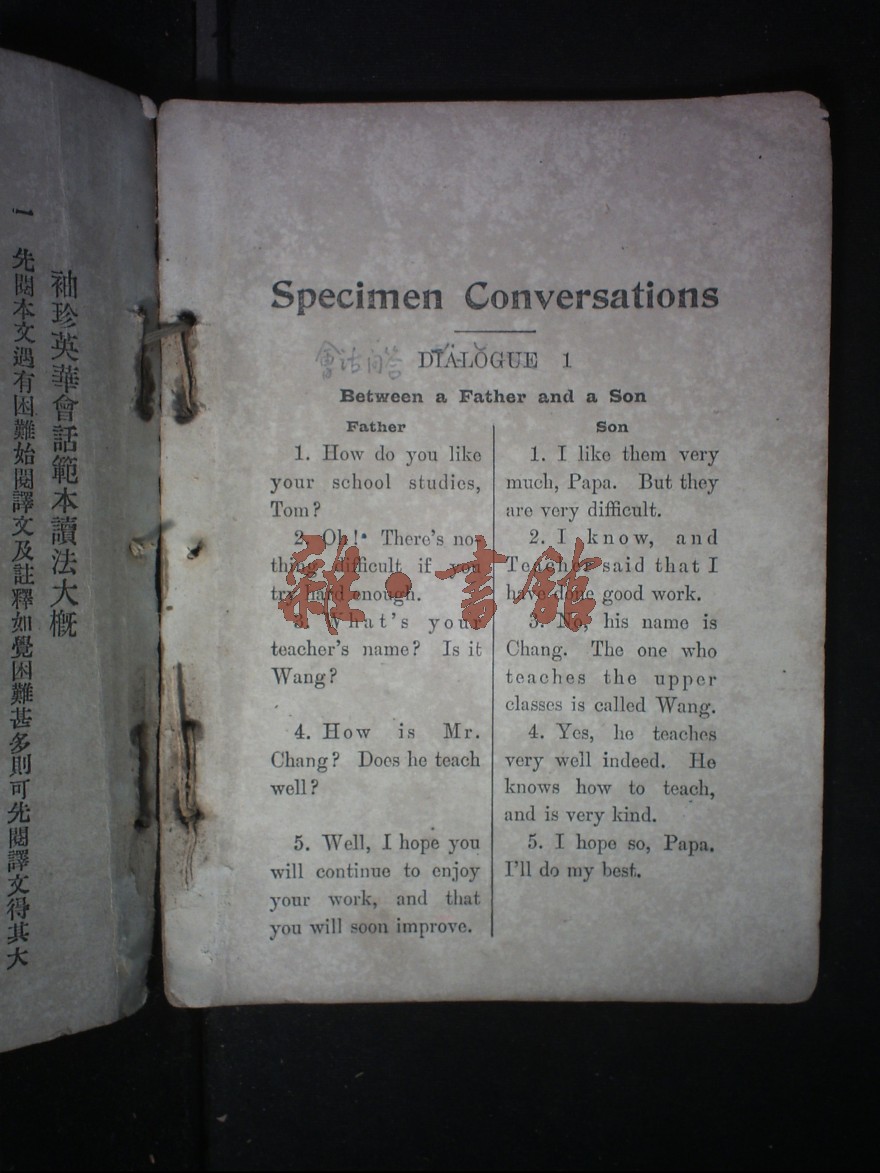 袖珍英華會話範本讀法大概
一 先閱本文遇有困難始閱譯文及註釋如覺困難甚多則可先閱譯文得其大
Specimen Conversations
會話问答
DIALOGUE 1
Between a Father and a Son
Father
1. How do you like
your school studies,
Tom?
2. Oh! There's no-
thing difficult if you
try hard enough.
3. What's your
teacher's name? Is it
Wang?
4. How is Mr.
Chang? Does he teach
well?
5. Well, I hope you
will continue to enjoy
your work, and that
you will soon improve.
Son
1. I like them very
much, Papa. But they
are very difficult.
2. I know, and
Teacher said that I
have done good work.
3. No, his name is
Chang. The one who
teaches the upper
classes is called Wang.
4. Yes, he teaches
very well indeed. He
knows how to teach,
and is very kind.
5. I hope so, Papa.
I'll do my best.
雜·書館